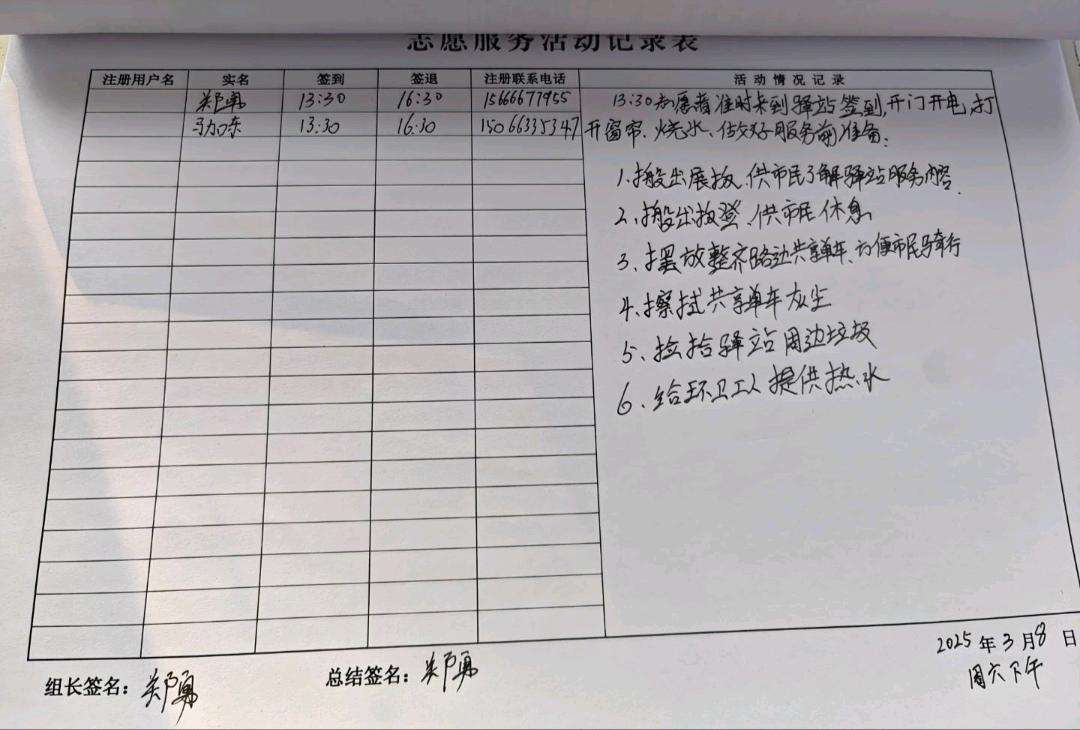 志愿服务活动记录表
注册用户名 实名 签到 签退 注册联系电话 活动情况记录
郑勇 13:30 16:30 15666677955
马加东 13:30 16:30 15066335347
13:30志愿者准时来到驿站签到,开门开电,打
开窗帘、烧水、做好服务前准备:
1、搬出展板、供市民了解驿站服务内容.
2、搬出板登、供市民休息
3、摆放整齐路边共享单车、方便市民骑行
4、擦拭共享单车灰尘
5、捡拾驿站周边垃圾
6、给环卫工人提供热水
2025年3月8日
周六下午
组长签名:郑勇 总结签名:郑勇